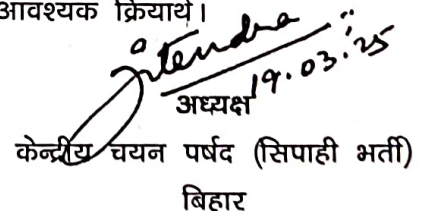 आवश्यक क्रियार्थ।
Jitendra
19.03.25
अध्यक्ष
केन्द्रीय चयन पर्षद (सिपाही भर्ती)
बिहार